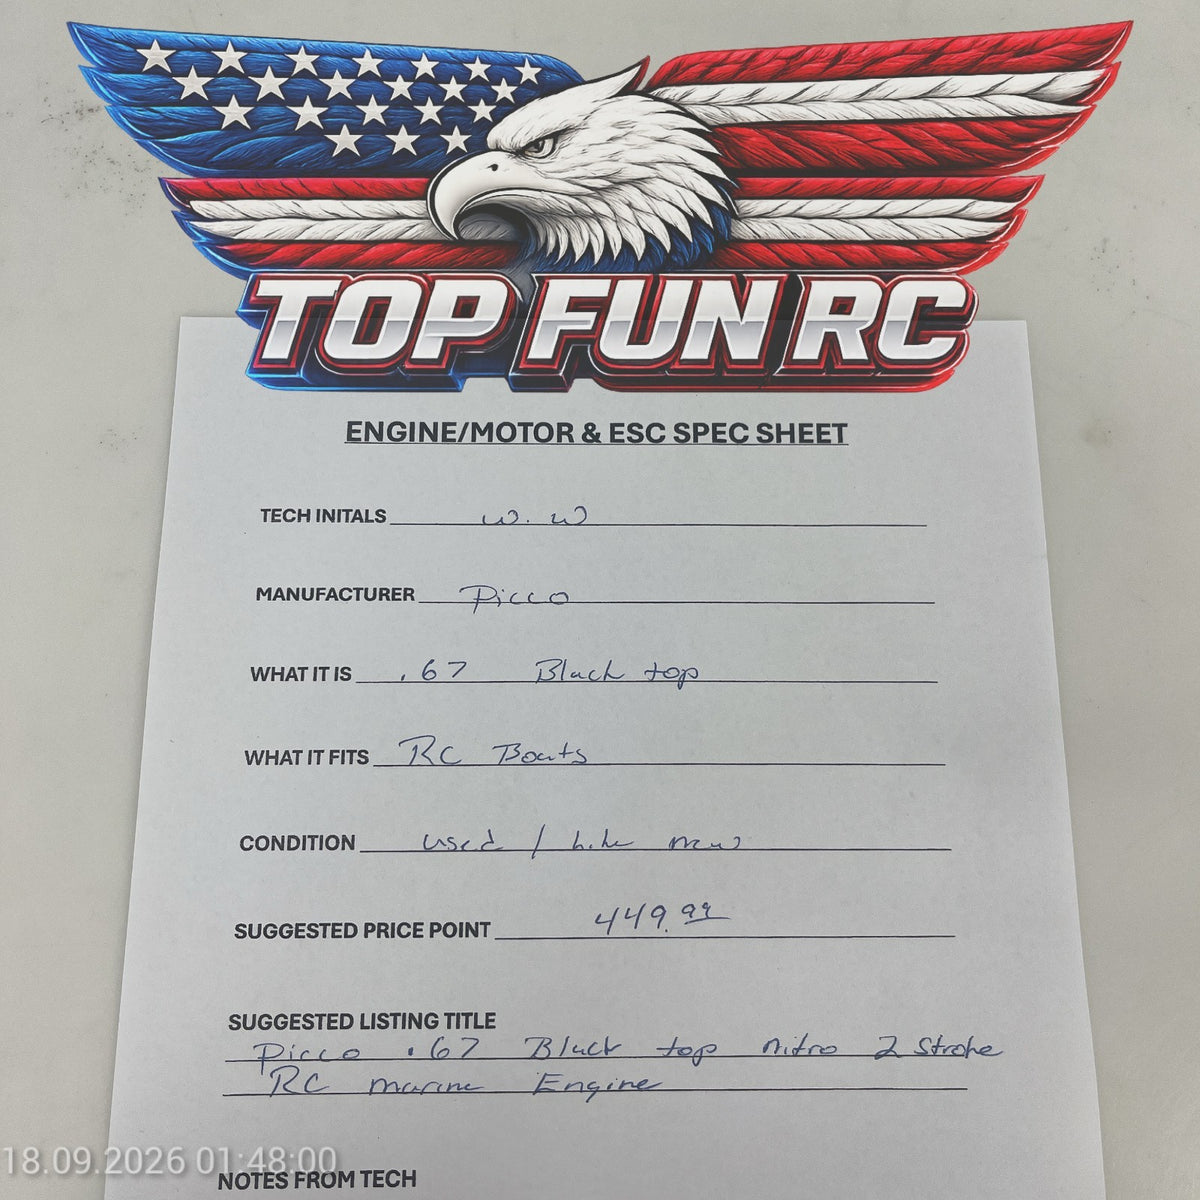 TOP FUN RC
ENGINE/MOTOR & ESC SPEC SHEET
TECH INITALS W. W
MANUFACTURER Picco
WHAT IT IS .67 Black top
WHAT IT FITS RC Boats
CONDITION used / like new
SUGGESTED PRICE POINT 449.99
SUGGESTED LISTING TITLE
Picco .67 Black top nitro 2 Stroke
RC marine Engine
NOTES FROM TECH
18.09.2026 01:48:00